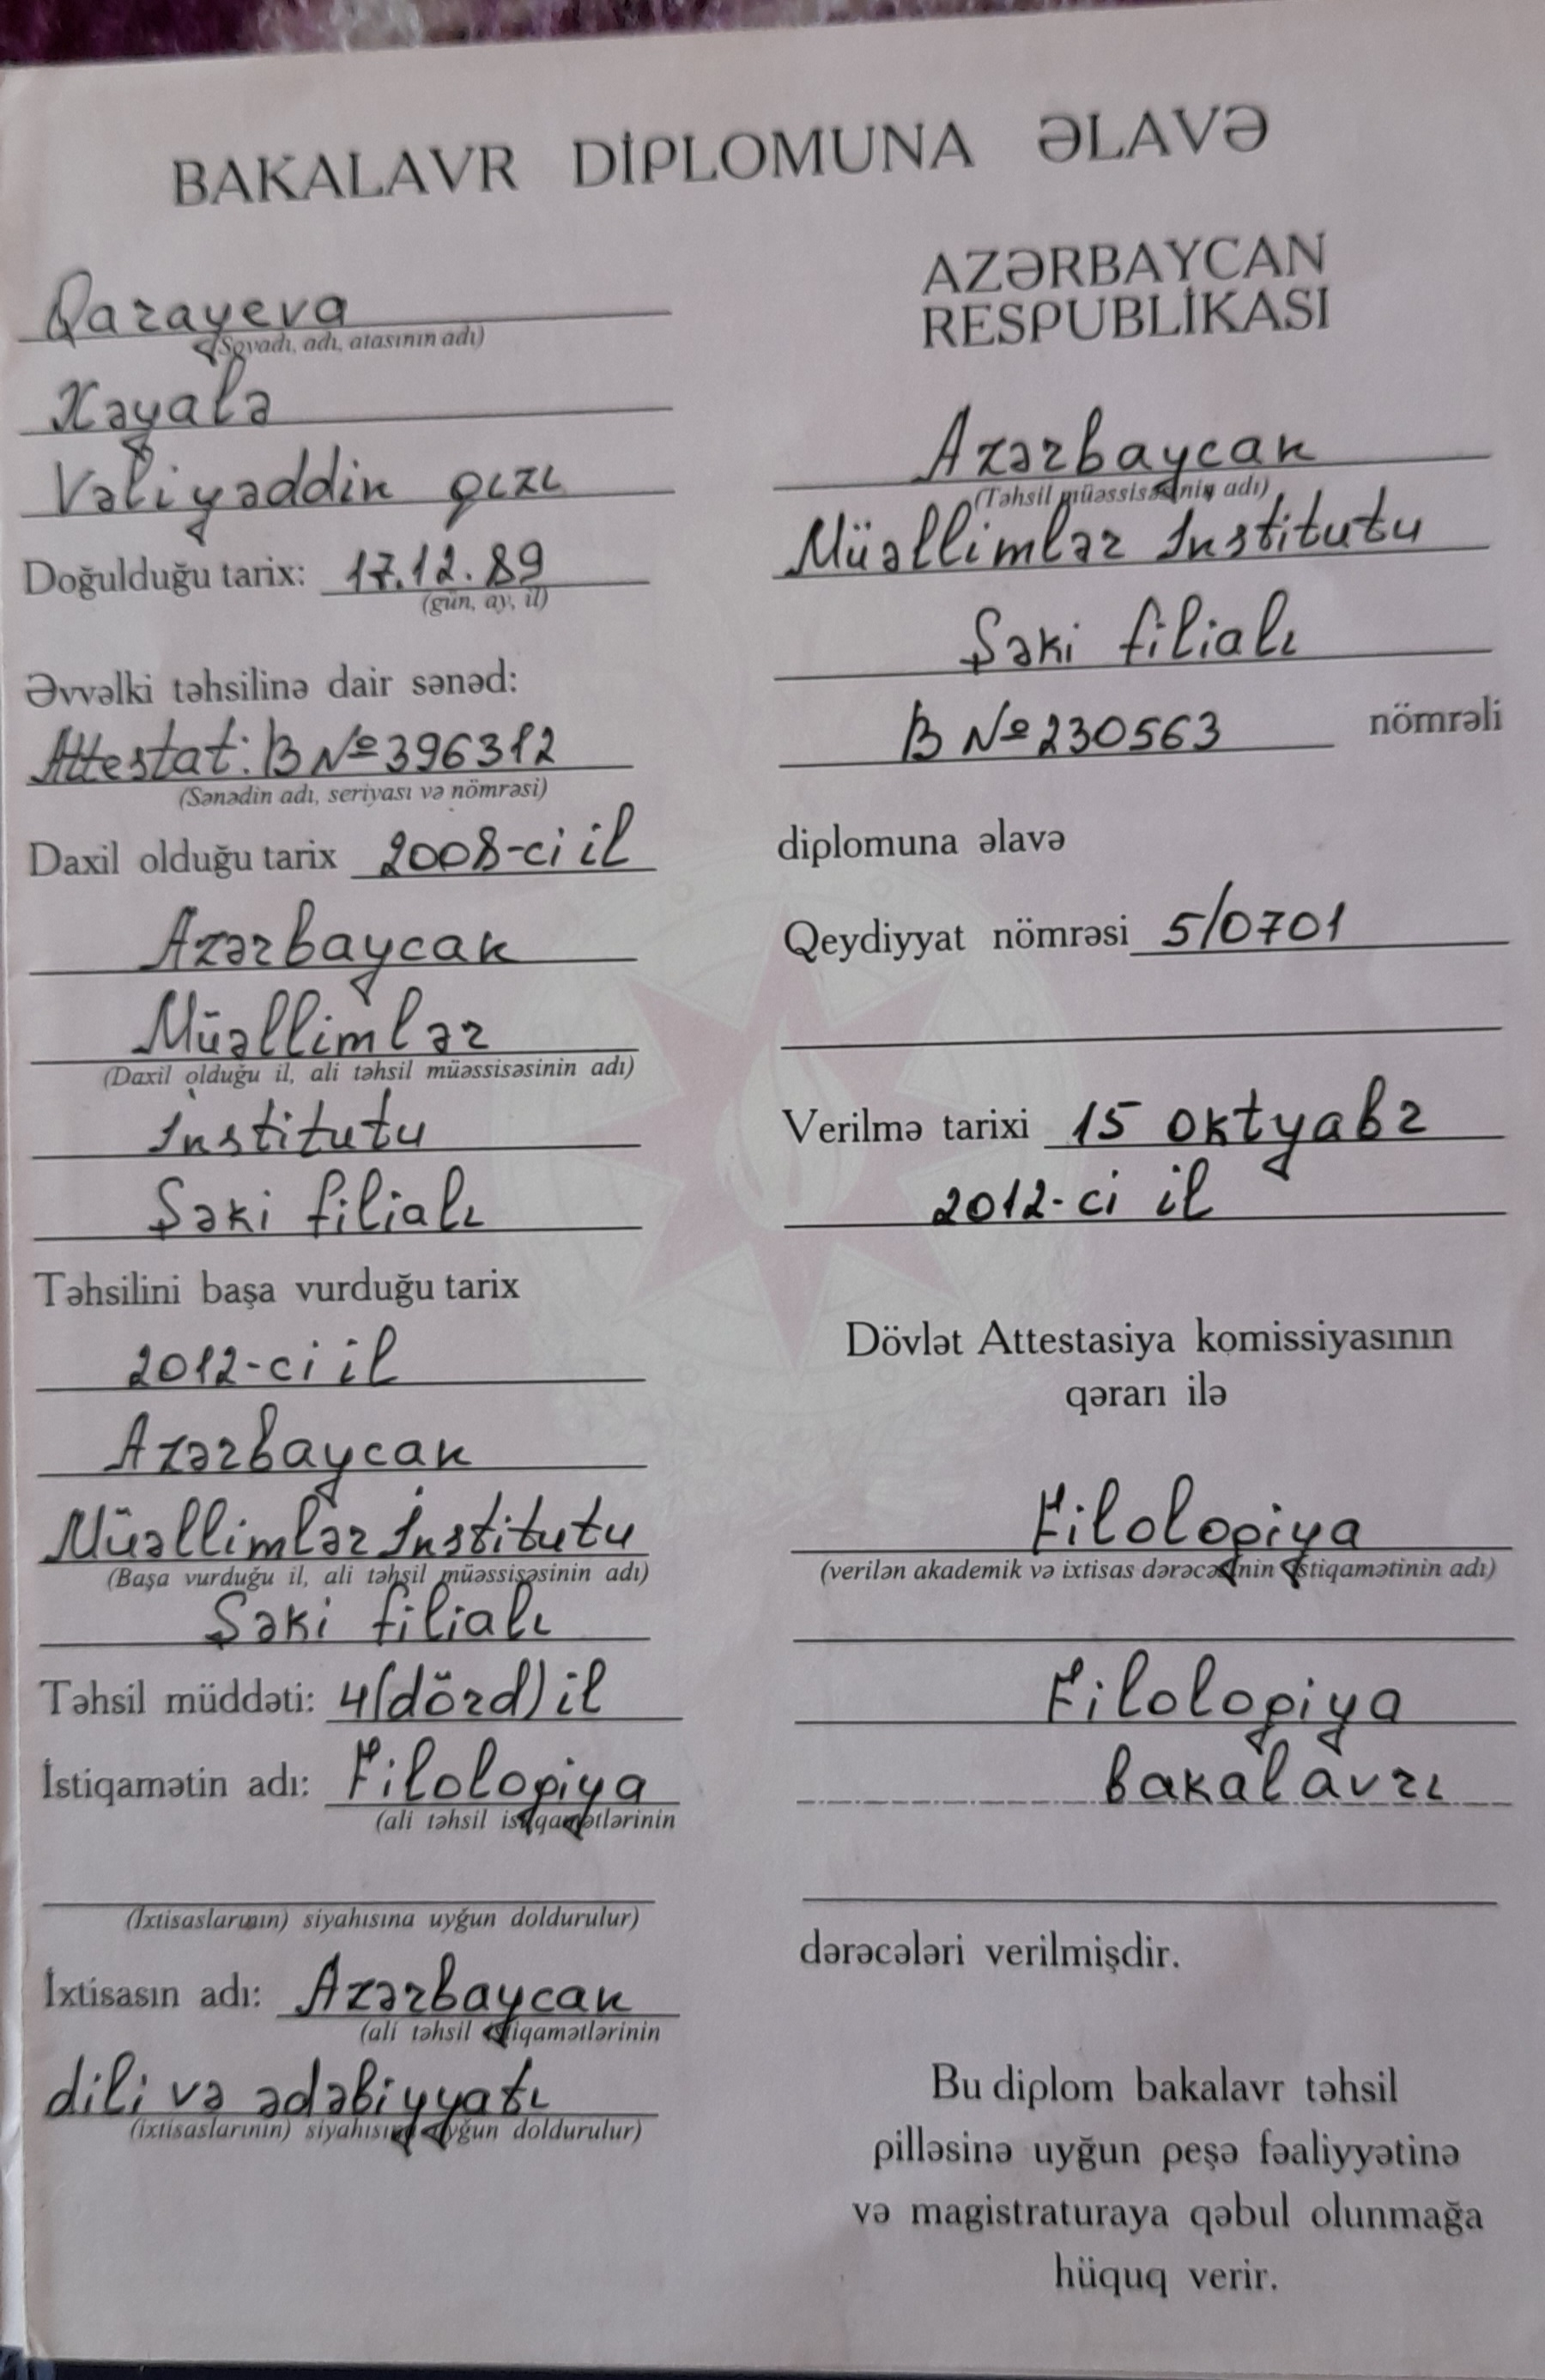 BAKALAVR DİPLOMUNA ƏLAVƏ
Qarayeva
(Soyadı, adı, atasının adı)
Xəyalə
Vəliyəddin qızı
Doğulduğu tarix: 17.12.89
(gün, ay, il)
Əvvəlki təhsilinə dair sənəd:
Attestat: B №396312
(Sənədin adı, seriyası və nömrəsi)
Daxil olduğu tarix 2008-ci il
Azərbaycan
Müəllimlər
(Daxil olduğu il, ali təhsil müəssisəsinin adı)
İnstitutu
Şəki filialı
Təhsilini başa vurduğu tarix
2012-ci il
Azərbaycan
Müəllimlər İnstitutu
(Başa vurduğu il, ali təhsil müəssisəsinin adı)
Şəki filialı
Təhsil müddəti: 4(dörd) il
İstiqamətin adı: Filologiya
(ali təhsil istiqamətlərinin
(İxtisaslarının) siyahısına uyğun doldurulur)
İxtisasın adı: Azərbaycan
(ali təhsil istiqamətlərinin
dili və ədəbiyyatı
(ixtisaslarının) siyahısına uyğun doldurulur)
AZƏRBAYCAN
RESPUBLİKASI
Azərbaycan
(Təhsil müəssisəsinin adı)
Müəllimlər İnstitutu
Şəki filialı
B №230563 nömrəli
diplomuna əlavə
Qeydiyyat nömrəsi 5/0701
Verilmə tarixi 15 oktyabr
2012-ci il
Dövlət Attestasiya komissiyasının
qərarı ilə
Filologiya
(verilən akademik və ixtisas dərəcəsinin istiqamətinin adı)
Filologiya
bakalavrı
dərəcələri verilmişdir.
Bu diplom bakalavr təhsil
pilləsinə uyğun peşə fəaliyyətinə
və magistraturaya qəbul olunmağa
hüquq verir.